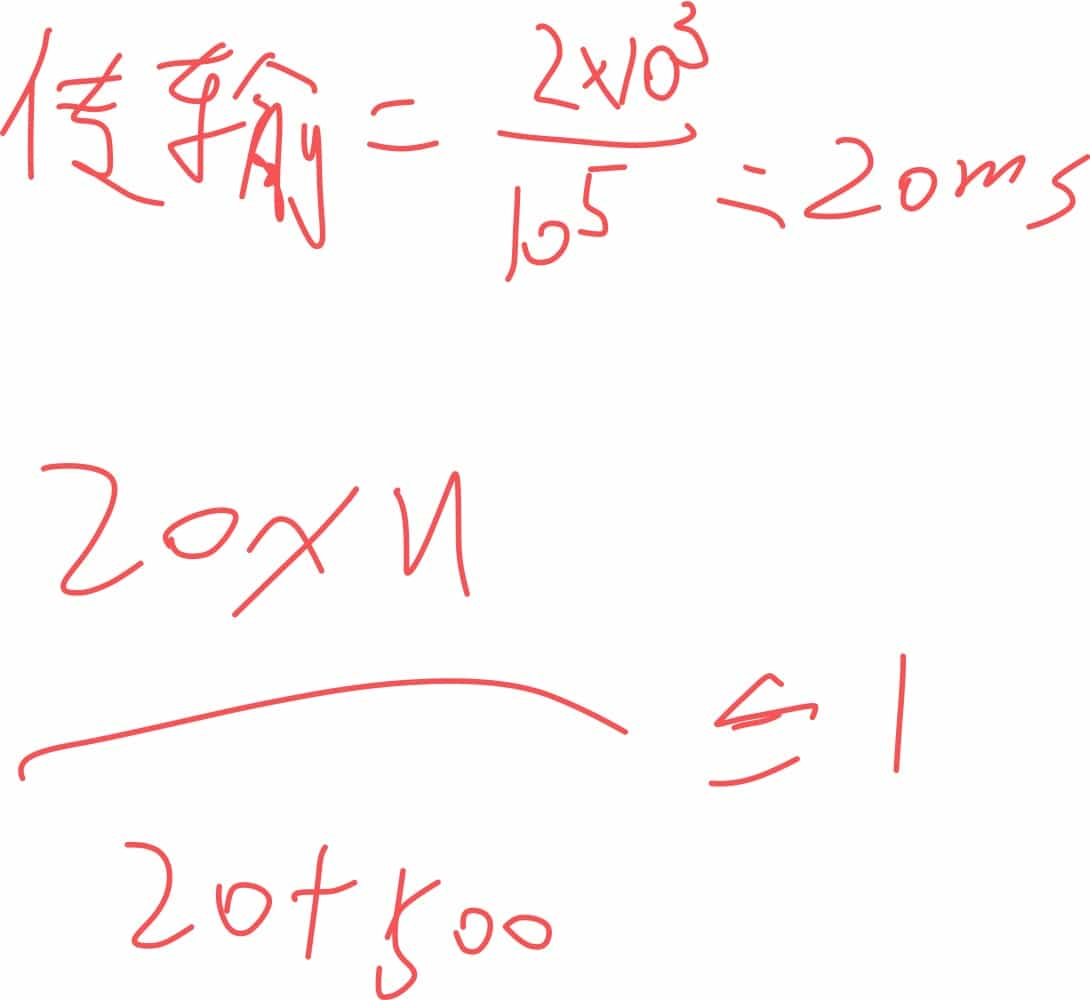 传输 = 2×10³ / 10⁵ = 20ms
20×n / 20+500 ≤ 1